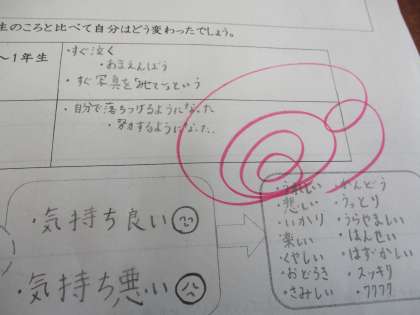 生のころと比べて自分はどう変わったでしょう。
～1年生
・すぐ泣く
・あまえんぼう
・すぐ写真を
・自分で落ちつけるようになった
・努力するようになった
・気持ち良い
・気持ち悪い
・うれしい
・かんどう
悲しい
・うっとり
・いかり
・うらやましい
楽しい
・はんせい
・くやしい
・はずかしい
・おどろき
・スッキリ
・さみしい
・ワクワク